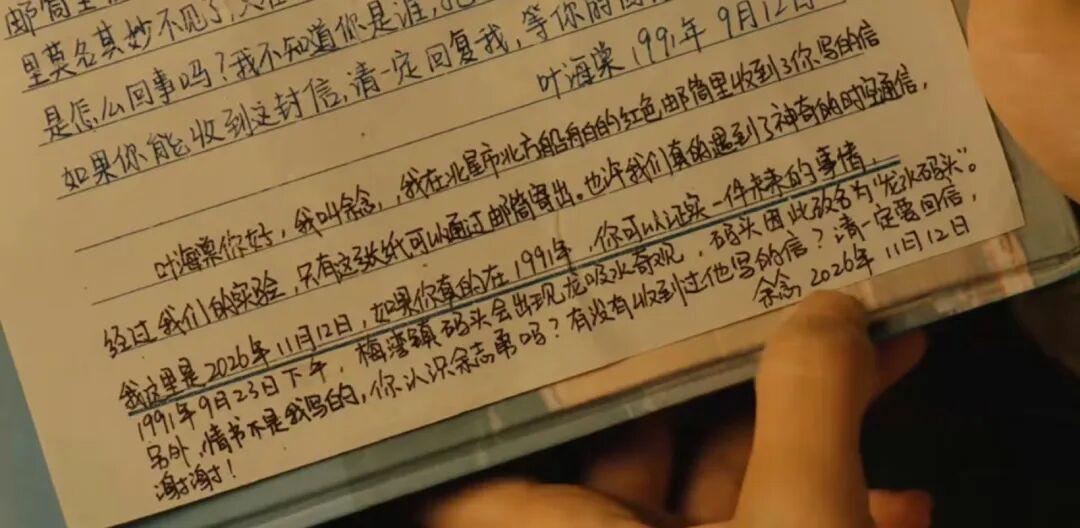 里莫名其妙不见了,又在
是怎么回事吗?我不知道你是谁,
如果你能收到这封信,请一定回复我,等你的回
叶海棠 1991年 9月12日
叶海棠你好,我叫余念,我在北尾市北方船舶的红色邮筒里收到了你写的信
经过我们的实验,只有这张纸可以通过邮筒寄出。也许我们真的遇到了神奇的时空通信,
我这里是2026年11月12日,如果你真的在1991年,你可以证实一件未来的事情,
1991年9月23日下午,梅湾镇码头会出现龙吸水奇观,码头因此改名为"龙水码头"。
另外,情书不是我写的,你认识余志勇吗?有没有收到过他写的信?请一定要回信,
谢谢!
余念 2026年 11月12日